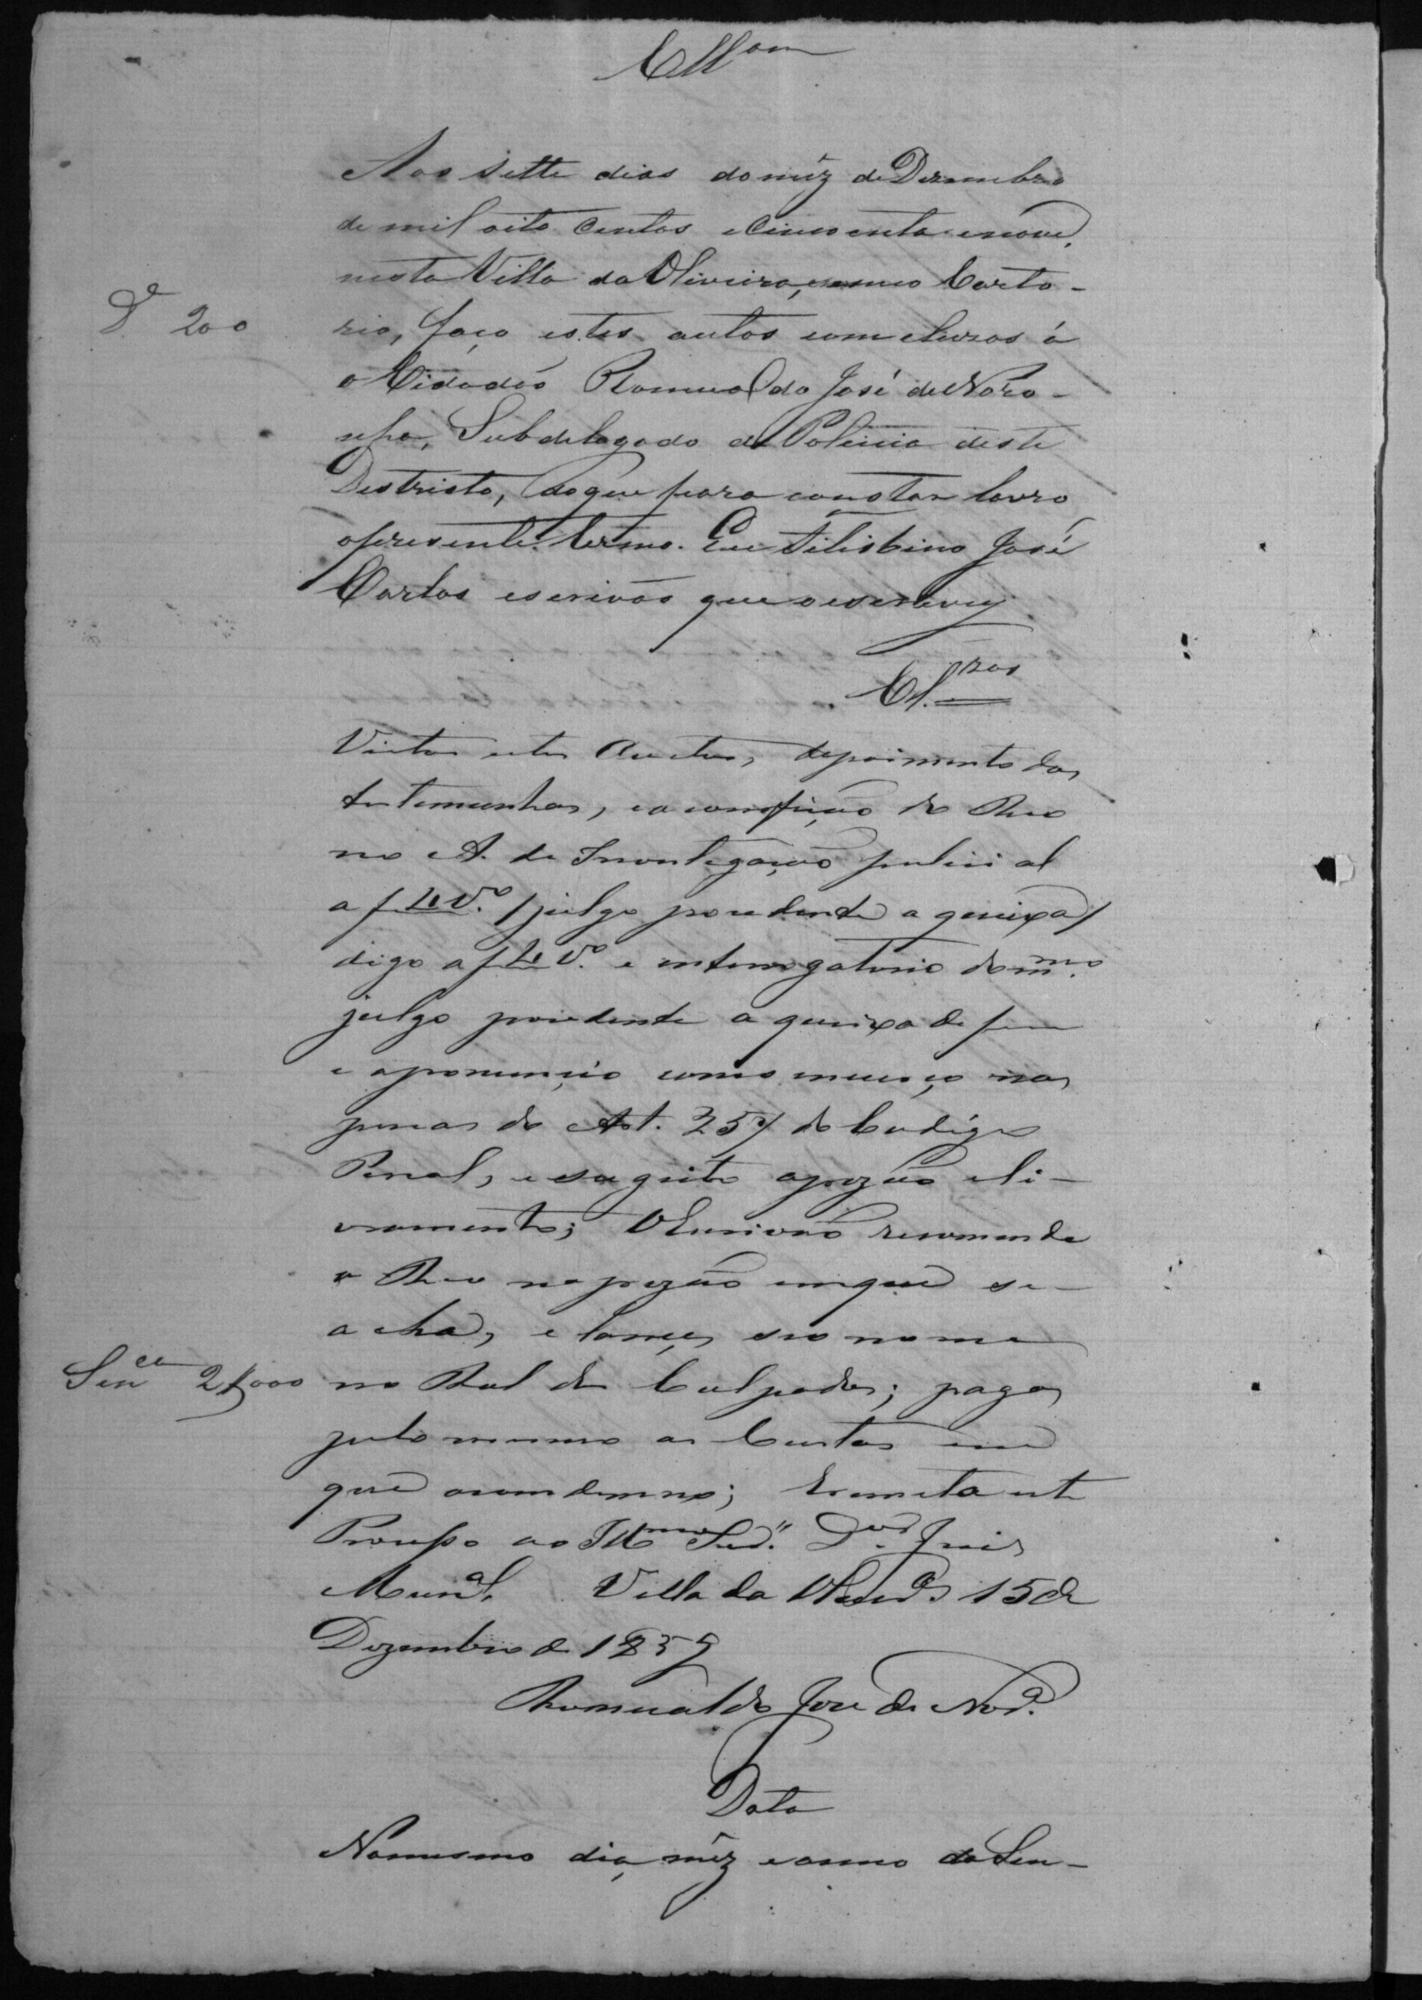 Cll.am
Aos sette dias do mêz de Dezembro
de mil oito centos e cincoenta e nove,
nesta Villa da Oliveira, em meo Carto-
D.e 200
rio, faço estes autos com cluzos á
o Cidadão Romualdo José de Noro-
nha, Subdelegado de Policia deste
Destricto, do que para constar lavro
o presente termo. Eu Filisbino José
Carlos escrivão que o escrevy
Cl.zos
Vistos estes Auctos, depoimento das
testemunhas, e a confição do Reo
no A. de Investegação pulicial
a f V.o / julgo porcedente a queixa /
digo a f V.o e enterrogatorio do m.mo
julgo porcedente a queixa de f
e a pronuncio como incurço nas
penas do Art. 257 do Codigo
Penal, e sugeito a prizão e li-
vramento; O Escrivão recomende
o Reo na prizão em que se
acha, e lance seo nome
Sen.ca 2$000
no Rol dos Culpados; pagas
pelo mesmo as Custas em
que o condemno; e remeta este
Proceso ao Ill.mo Snr. D.or Juis
Mun.al Villa da Oliv.a 15 de
Dezembro de 1859
Romualdo Jose de Nor.a
Data
No mesmo dia, mêz e anno da Sen-